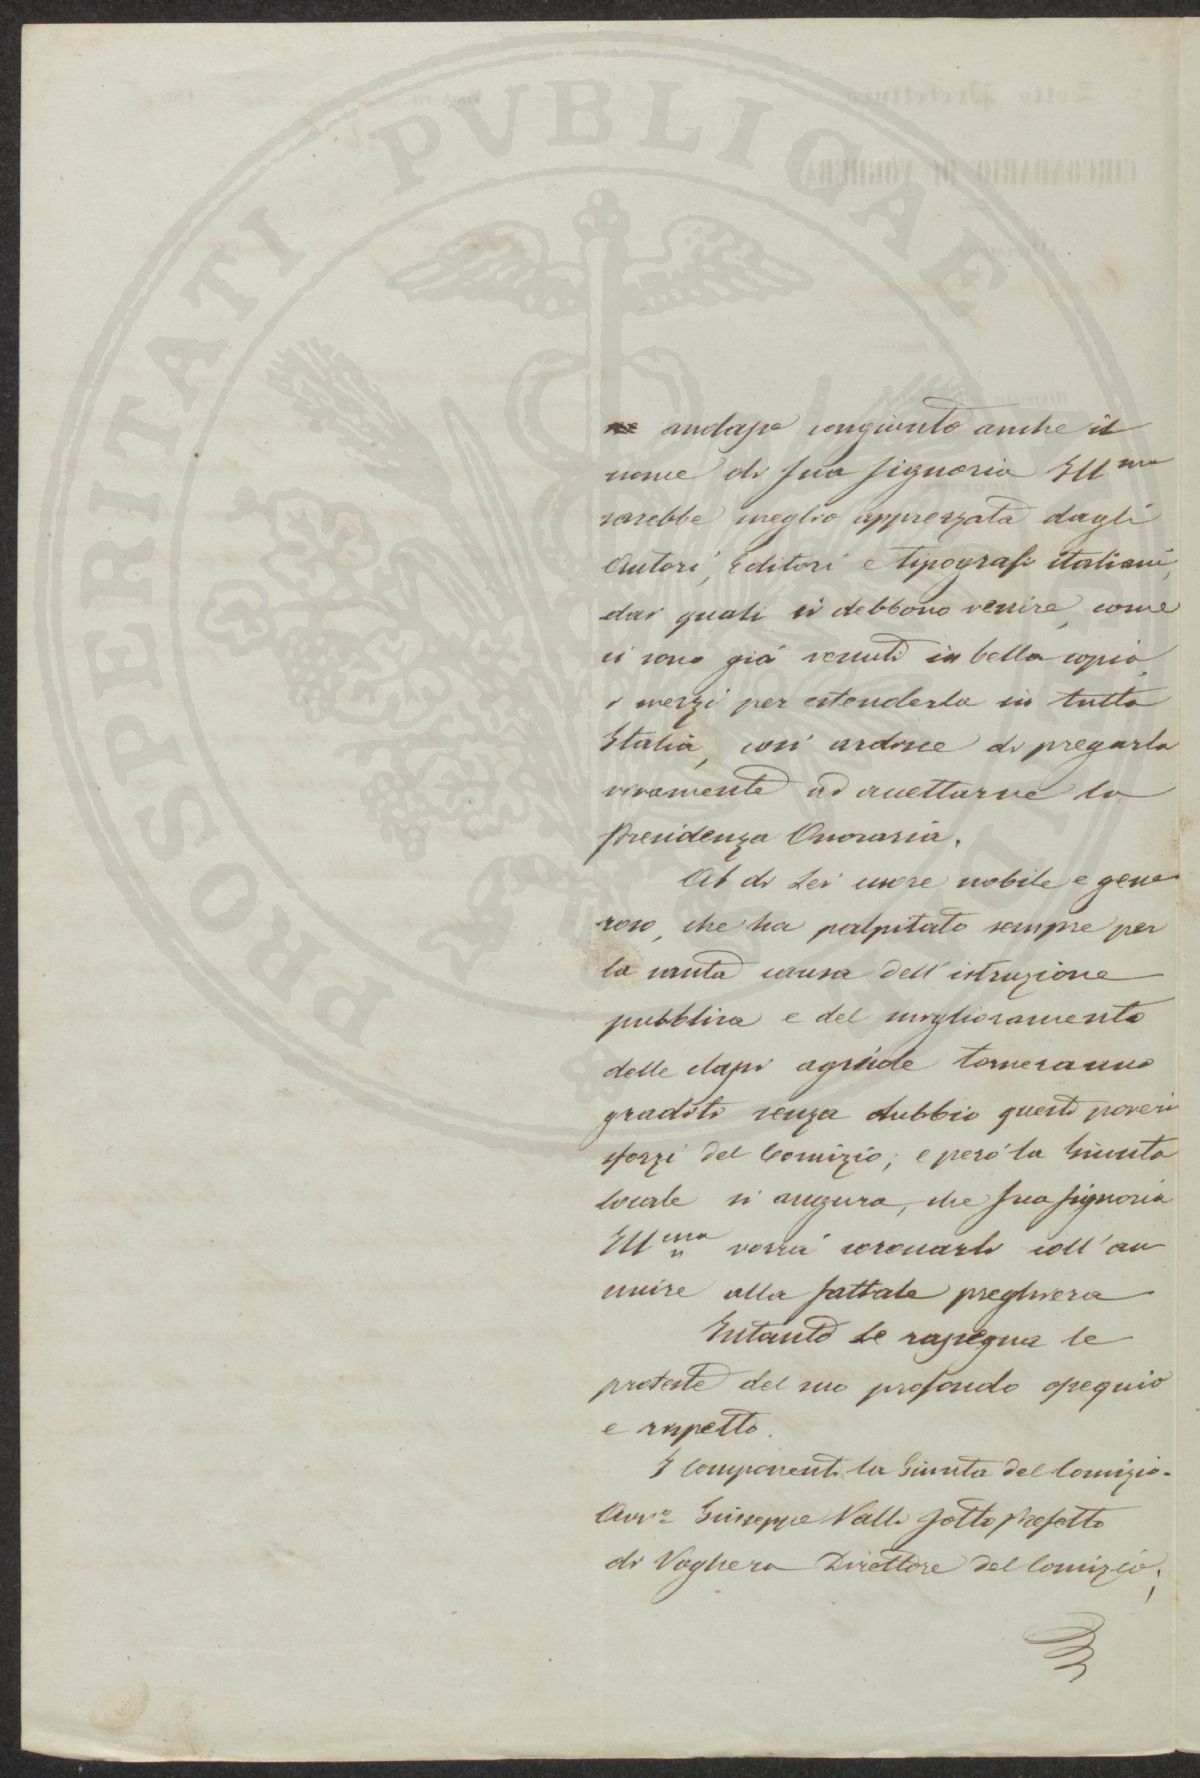 andasse congiunto anche il
nome di Sua Signoria Ill.ma
sarebbe meglio apprezzata dagli
Autori, Editori e tipografi italiani,
dai quali ci debbono venire, come
ci sono già venuti in bella copia,
i mezzi per estenderla in tutta
Italia, così ardisce di pregarla
vivamente ad accettarne la
Presidenza Onoraria.
Al di Lei cuore nobile e gene
roso, che ha palpitato sempre per
la santa causa dell'istruzione
pubblica e del miglioramento
delle classi agricole torneranno
graditi senza dubbio questi poveri
sforzi del Comizio; e però la Giunta
locale si augura, che Sua Signoria
Ill.ma vorrà coronarli coll'an
nuire alla fattale preghiera
Intanto Le rassegna le
proteste del suo profondo ossequio
e rispetto.
I componenti la Giunta del Comizio.
Avv.o Giuseppe Valli Sotto Prefetto
di Voghera Direttore del Comizio;
PROSPERITATI PVBLICAE
CIRCONDARIO DI VOGHERA